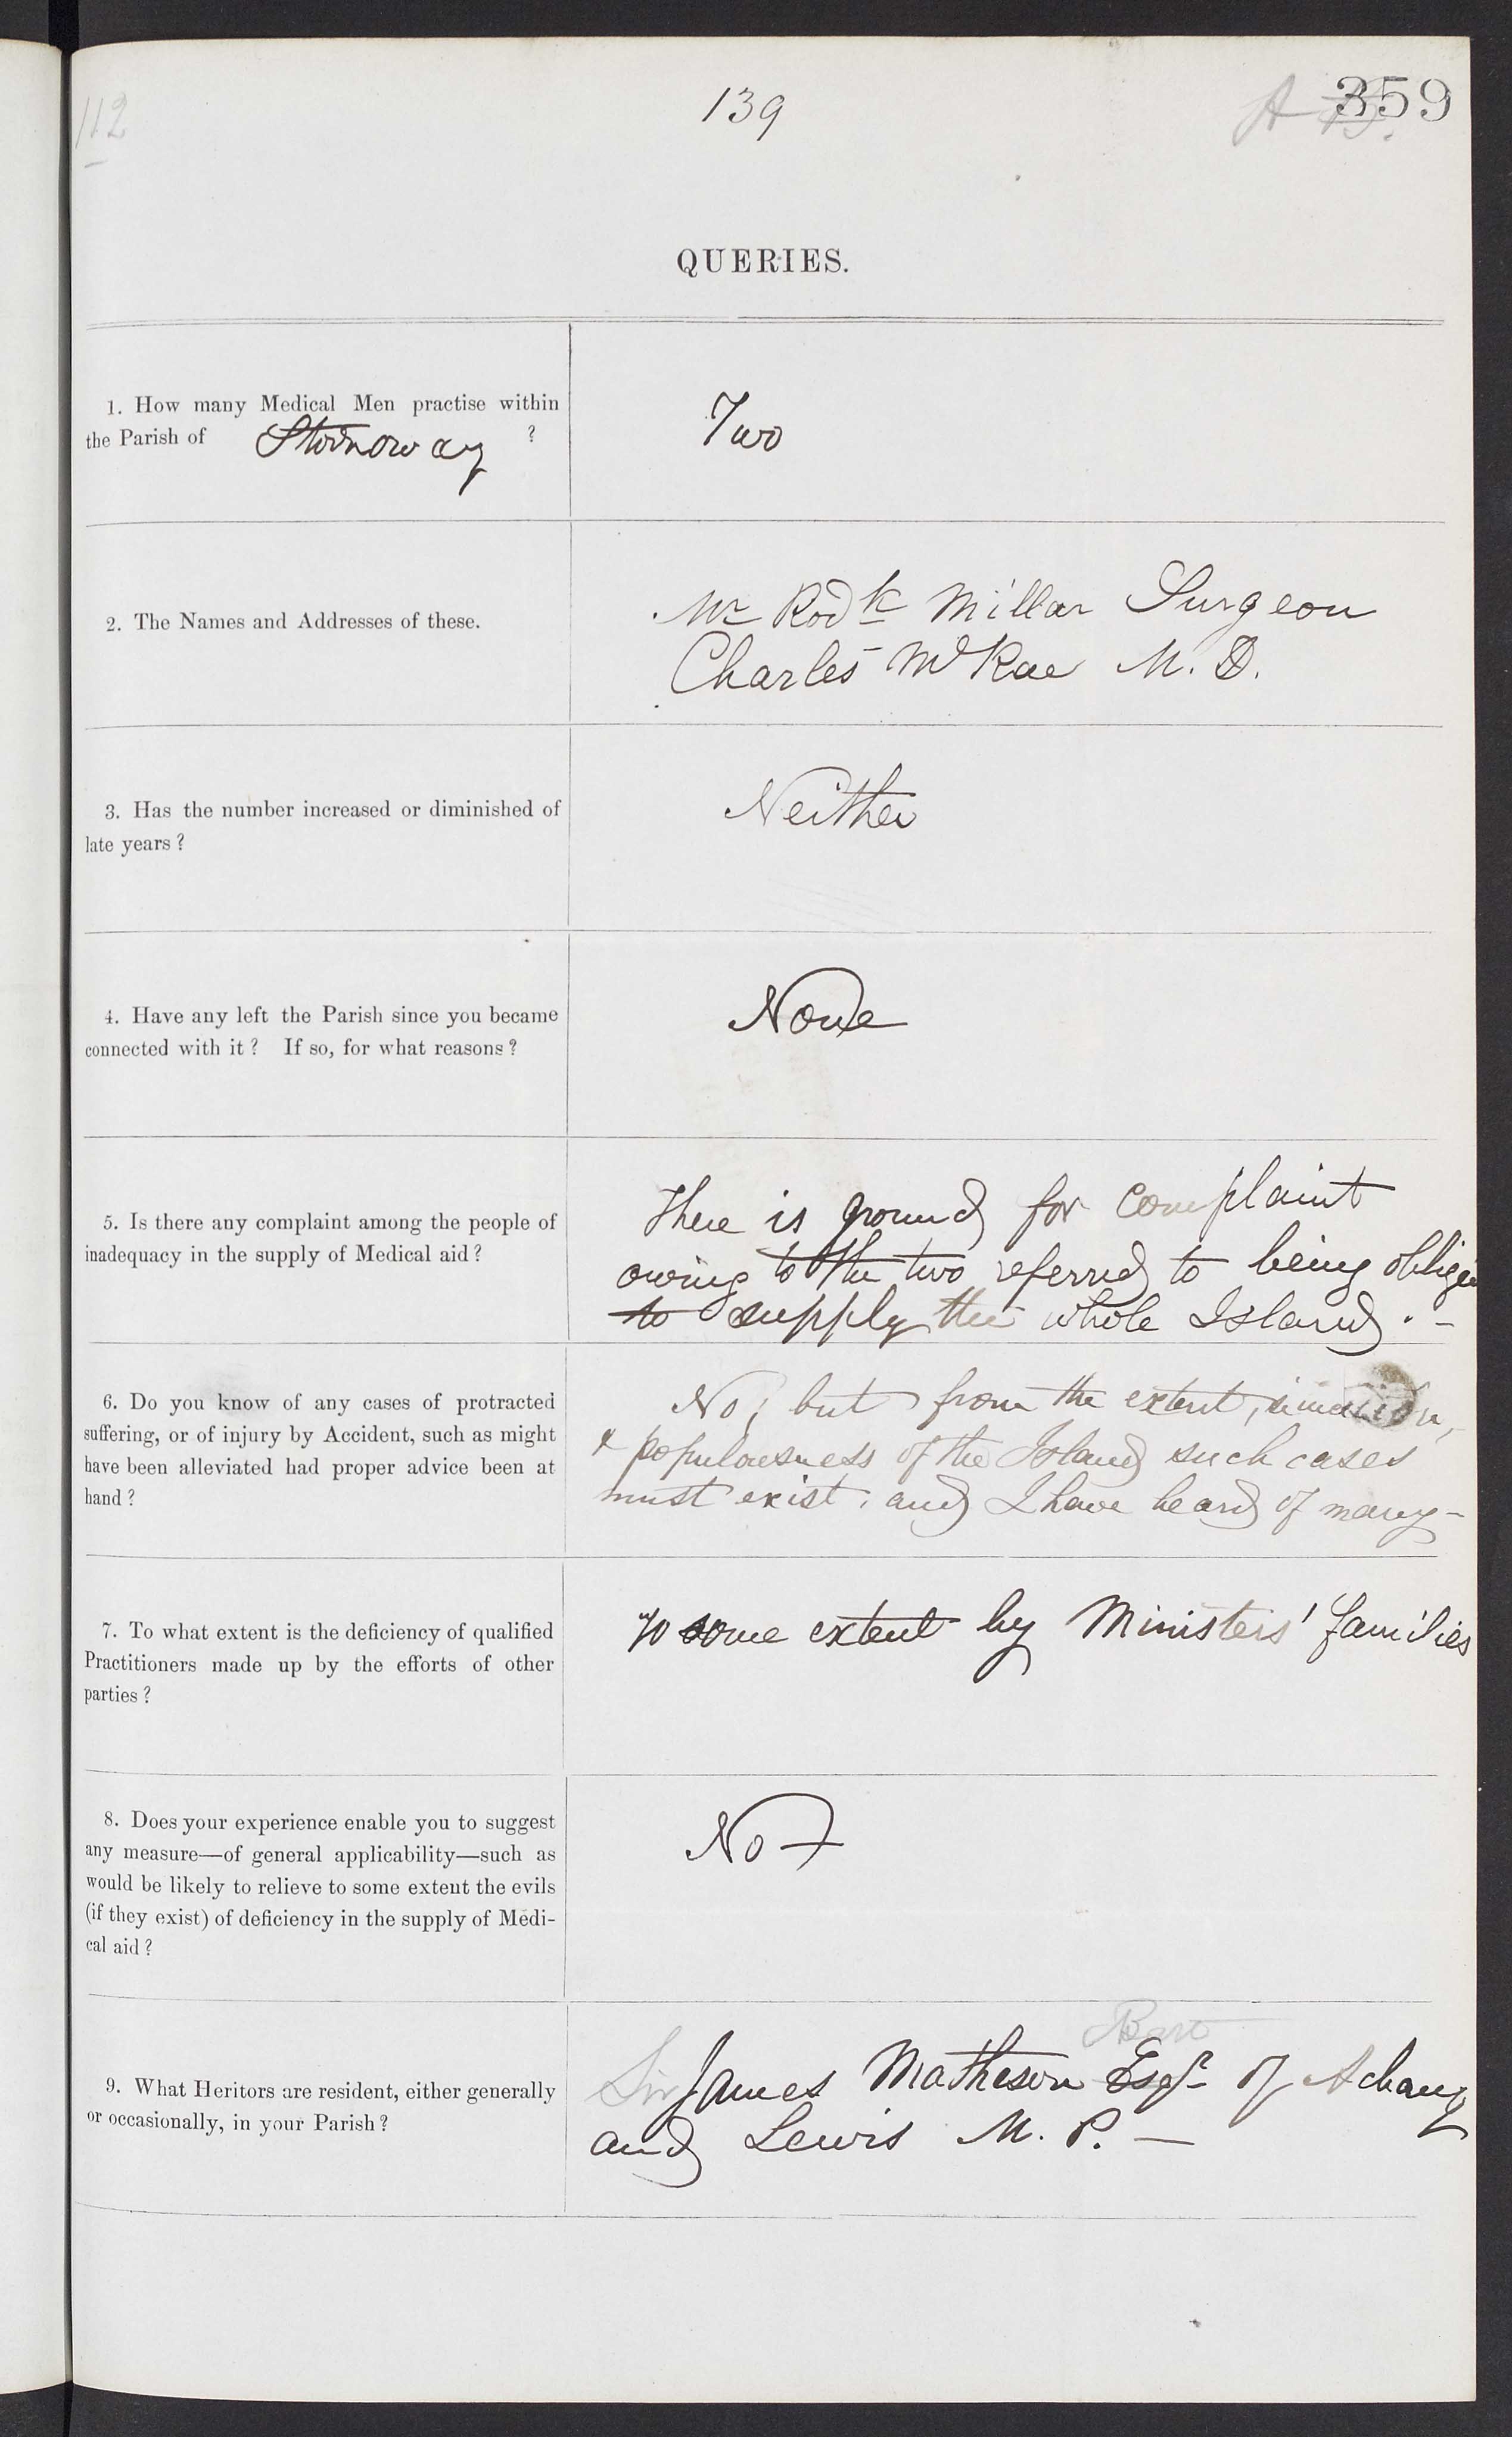 112
139
A
359
QUERIES.
1. How many Medical Men practise within
the Parish of Stornoway ?
Two
2. The Names and Addresses of these.
Mr Rodk Millar Surgeon
Charles McRae M. D.
3. Has the number increased or diminished of
late years ?
Neither
4. Have any left the Parish since you became
connected with it ? If so, for what reasons ?
None
5. Is there any complaint among the people of
inadequacy in the supply of Medical aid ?
There is ground for complaint
owing to the two referred to being
to supply the whole Island. -
6. Do you know of any cases of protracted
suffering, or of injury by Accident, such as might
have been alleviated had proper advice been at
hand ?
No; but from the extent,
& populousness of the Island such cases
must exist, and I have heard of many -
7. To what extent is the deficiency of qualified
Practitioners made up by the efforts of other
parties ?
To some extent by Ministers' families
8. Does your experience enable you to suggest
any measure—of general applicability—such as
would be likely to relieve to some extent the evils
(if they exist) of deficiency in the supply of Medi-
cal aid ?
No
9. What Heritors are resident, either generally
or occasionally, in your Parish ?
Bart
Sir James Matheson Esqr of Achany
and Lewis M. P. —